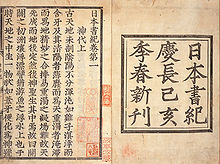 日本書紀
慶長己亥
季春新刊
日本書紀卷第一
神代上
古天地未剖陰陽不分渾沌如鷄子溟涬
而含牙及其清陽者薄靡而爲天重濁者淹滯
而爲地精妙之合搏易重濁之凝竭難故天
先成而地後定然後神聖生其中焉故曰開
闢之初洲壤浮漂譬猶游魚之浮水上也于
時天地之中生一物狀如葦牙便化爲神